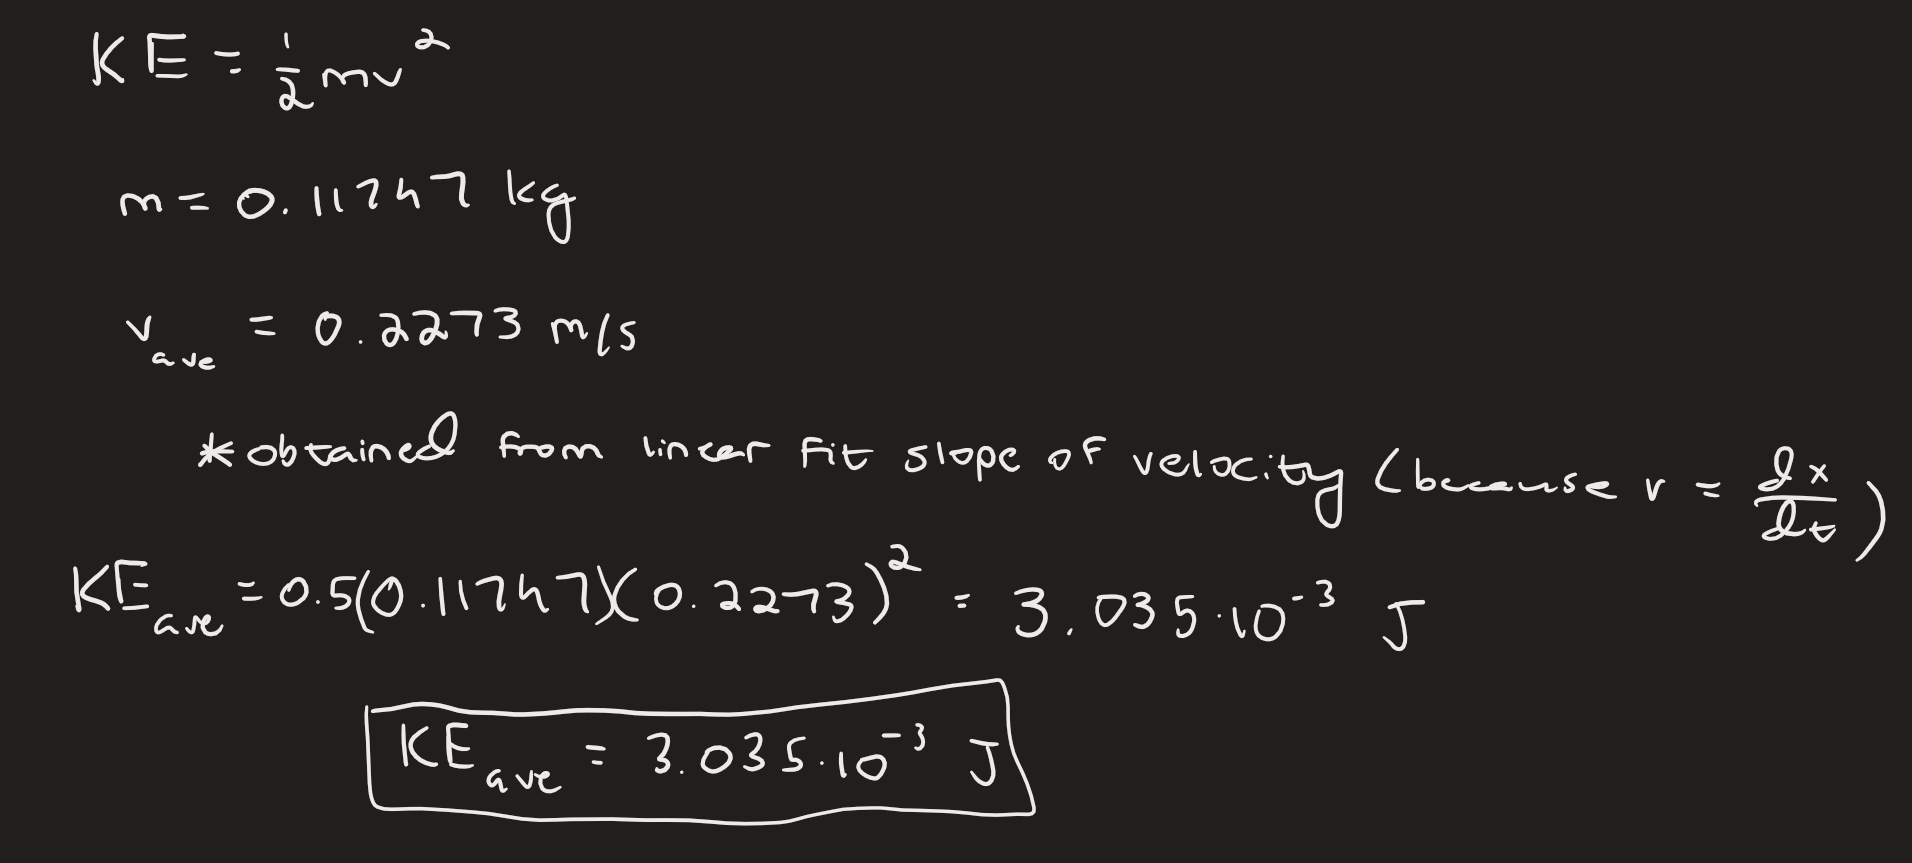 KE = 1/2 mv²
m = 0.11747 kg
v_ave = 0.2273 m/s
*obtained from linear fit slope of velocity (because v = dx/dt)
KE_ave = 0.5(0.11747)(0.2273)² = 3.035·10⁻³ J
KE_ave = 3.035·10⁻³ J